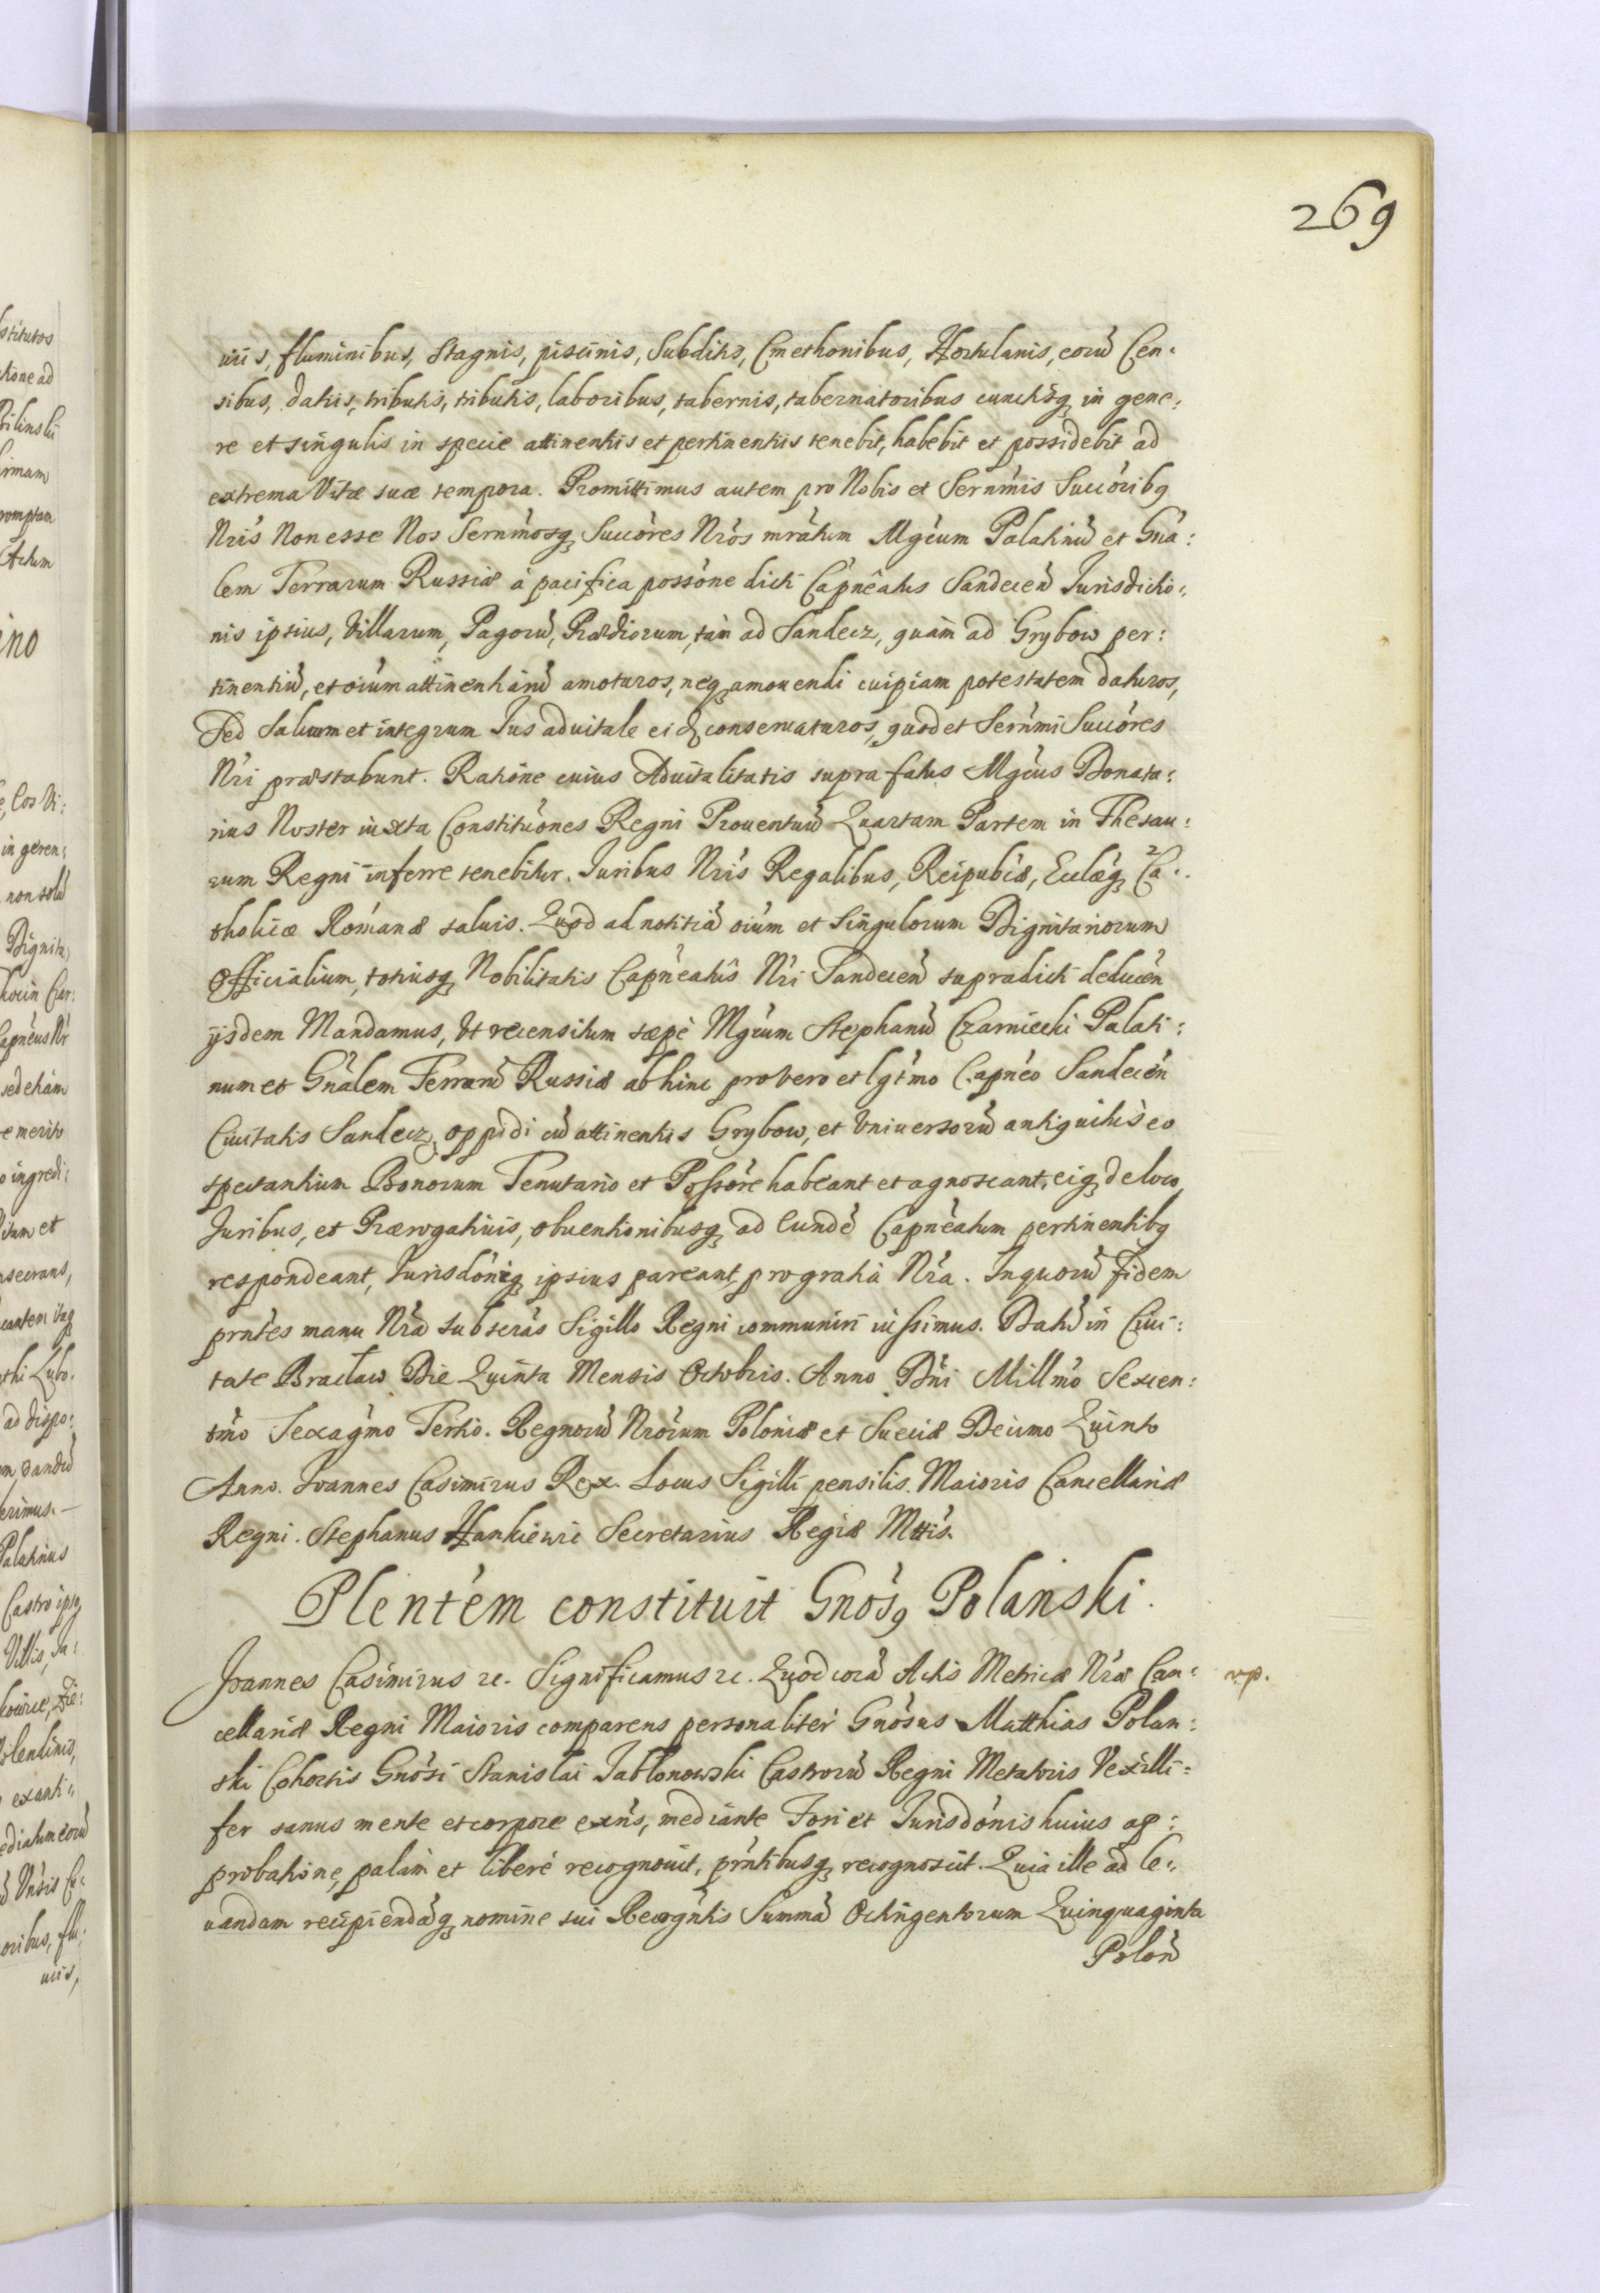 269
uiis, fluminibus, Stagnis, piscinis, Subditis, Cmethonibus, Hortulanis, eorū Cen:
sibus, datiis, tributis, tributis, laboribus, tabernis, tabernatoribus cunctisq₃ in gene:
re et singulis in specie attinentiis et pertinentiis tenebit, habebit et possidebit ad
extrema Vitæ suæ tempora. Promittimus autem pro Nobis et Sernmis Succoribq
Nris Non esse Nos Sernmosq₃ Succores Nros mratum Mgcum Palatinū et Gna:
lem Terrarum Russiæ à pacifica possone dicti Capneatus Sandecen Jurisdictio:
nis ipsius, Villarum, Pagorū, Prædiorum, tàm ad Sandecz, quàm ad Grybow per:
tinentiū, et oium attinentiarū amoturos, neq₃ amouendi cuipiam potestatem daturos,
Sed Saluum et integrum Jus aduitale eiq₃ conseruaturos, quod et Sernmi Succores
Nri præstabunt. Ratione cuius Aduitalitatis suprafatus Mgcus Donata:
rius Noster iuxta Constituones Regni Prouentuū Quartam Partem in Thesau:
rum Regni inferre tenebitur. Juribus Nris Regalibus, Reipublæ, Eccliæq₃ Ca:
tholicæ Romanæ saluis. Quod ad notitiā oium et Singulorum Dignitariorum
Officialium, totiusq₃ Nobilitatis Capneatus Nri Sandecen supradicti deducen
ijsdem Mandamus, Vt recensitum sæpè Mgcum Stephanū Czarniecki Palati:
num et Gnalem Terrarū Russiæ abhinc pro vero et lgtmo Capneo Sandecen
Ciuitatis Sandecz, Oppidi cū attinentiis Grybow, et Vniuersorū antiquitùs eo
spectantium Bonorum Tenutario et Possore habeant et agnoscant, eiq₃ de loco,
Juribus, et Prærogatiuis, obuentionibusq₃ ad Eundē Capneatum pertinentibq
respondeant, Jurisdoniq₃ ipsius pareant, pro gratia Nra. In quorū fidem
prntes manu Nra subscras Sigillo Regni communiri iussimus. Datū in Ciui:
tate Bracław Die Quinta Mensis Octobris. Anno Dni Millmo Sexcen:
tmo Sexagmo Tertio. Regnorū Nrorum Poloniæ et Sueciæ Decimo Quinto
Anno. Joannes Casimirus Rex. Locus Sigilli pensilis. Maioris Cancellariæ
Regni. Stephanus Hankiewic Secretarius Regiæ Mttis.
Plentem constituit Gnosq Polanski.
Joannes Casimirus rc. Significamus rc. Quod corā Actis Metricæ Nræ Can:
rp.
cellariæ Regni Maioris comparens personaliter Gnosus Matthias Polan:
ski Cohortis Gnosi Stanislai Jabłonowski Castrorū Regni Metatoris Vexilli:
fer sanus mente et corpore exns, mediante Fori et Jurisdonis huius ap:
probatione, palàm et liberè recognouit, prntibusq₃ recognoscit. Quia ille ad le:
uandam recipiendāq₃ nomine sui Recogntis Summā Octingentorum Quinquaginta
Polon